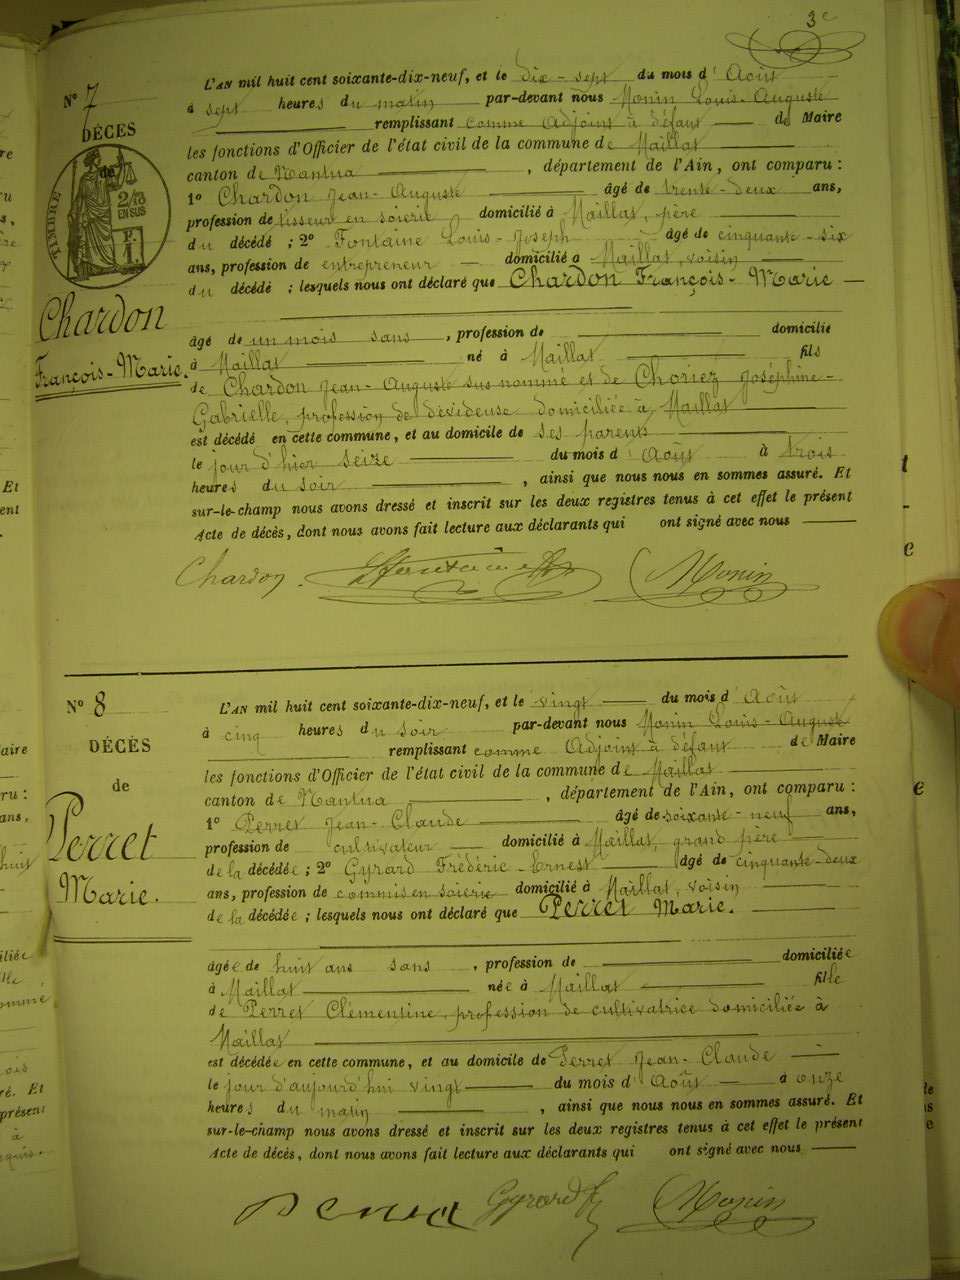 3e
N° 7
DÉCÈS
de
TIMBRE
2/10
EN SUS
F.
1.
Chardon
François-Marie.
L'AN mil huit cent soixante-dix-neuf, et le dix-sept du mois d'Août
à sept heures du matin par-devant nous Monin Louis-Auguste
remplissant comme Adjoint à défaut de Maire
les fonctions d'Officier de l'état civil de la commune de Maillat
canton de Nantua, département de l'Ain, ont comparu :
1° Chardon Jean-Auguste âgé de trente-deux ans,
profession de tisseur en soierie domicilié à Maillat, père
du décédé ; 2° Fontaine Louis-Joseph âgé de cinquante-six
ans, profession de entrepreneur domicilié à Maillat, voisin
du décédé ; lesquels nous ont déclaré que Chardon François-Marie
âgé de un mois sans, profession de domicilié
à Maillat né à Maillat fils
de Chardon Jean-Auguste susnommé et de Choriez Joséphine-
Gabrielle, profession de dévideuse domiciliée à Maillat
est décédé en cette commune, et au domicile de ses parents
le jour d'hier seize du mois d'Août à trois
heures du soir, ainsi que nous nous en sommes assuré. Et
sur-le-champ nous avons dressé et inscrit sur les deux registres tenus à cet effet le présent
Acte de décès, dont nous avons fait lecture aux déclarants qui ont signé avec nous
Chardon. Fontaine Monin
N° 8
DÉCÈS
de
Perret
Marie.
L'AN mil huit cent soixante-dix-neuf, et le vingt du mois d'Août
à cinq heures du soir par-devant nous Monin Louis-Auguste
remplissant comme Adjoint à défaut de Maire
les fonctions d'Officier de l'état civil de la commune de Maillat
canton de Nantua, département de l'Ain, ont comparu :
1° Perret Jean-Claude âgé de soixante-neuf ans,
profession de cultivateur domicilié à Maillat, grand père
de la décédée ; 2° Gyrard Frédéric-Ernest âgé de cinquante-deux
ans, profession de commis en soierie domicilié à Maillat, voisin
de la décédée ; lesquels nous ont déclaré que Perret Marie.
âgée de huit ans sans, profession de domiciliée
à Maillat née à Maillat fille
de Perret Clémentine, profession de cultivatrice domiciliée à
Maillat
est décédée en cette commune, et au domicile de Perret Jean-Claude
le jour d'aujourd'hui vingt du mois d'Août à onze
heures du matin, ainsi que nous nous en sommes assuré. Et
sur-le-champ nous avons dressé et inscrit sur les deux registres tenus à cet effet le présent
Acte de décès, dont nous avons fait lecture aux déclarants qui ont signé avec nous
Gyrard Monin